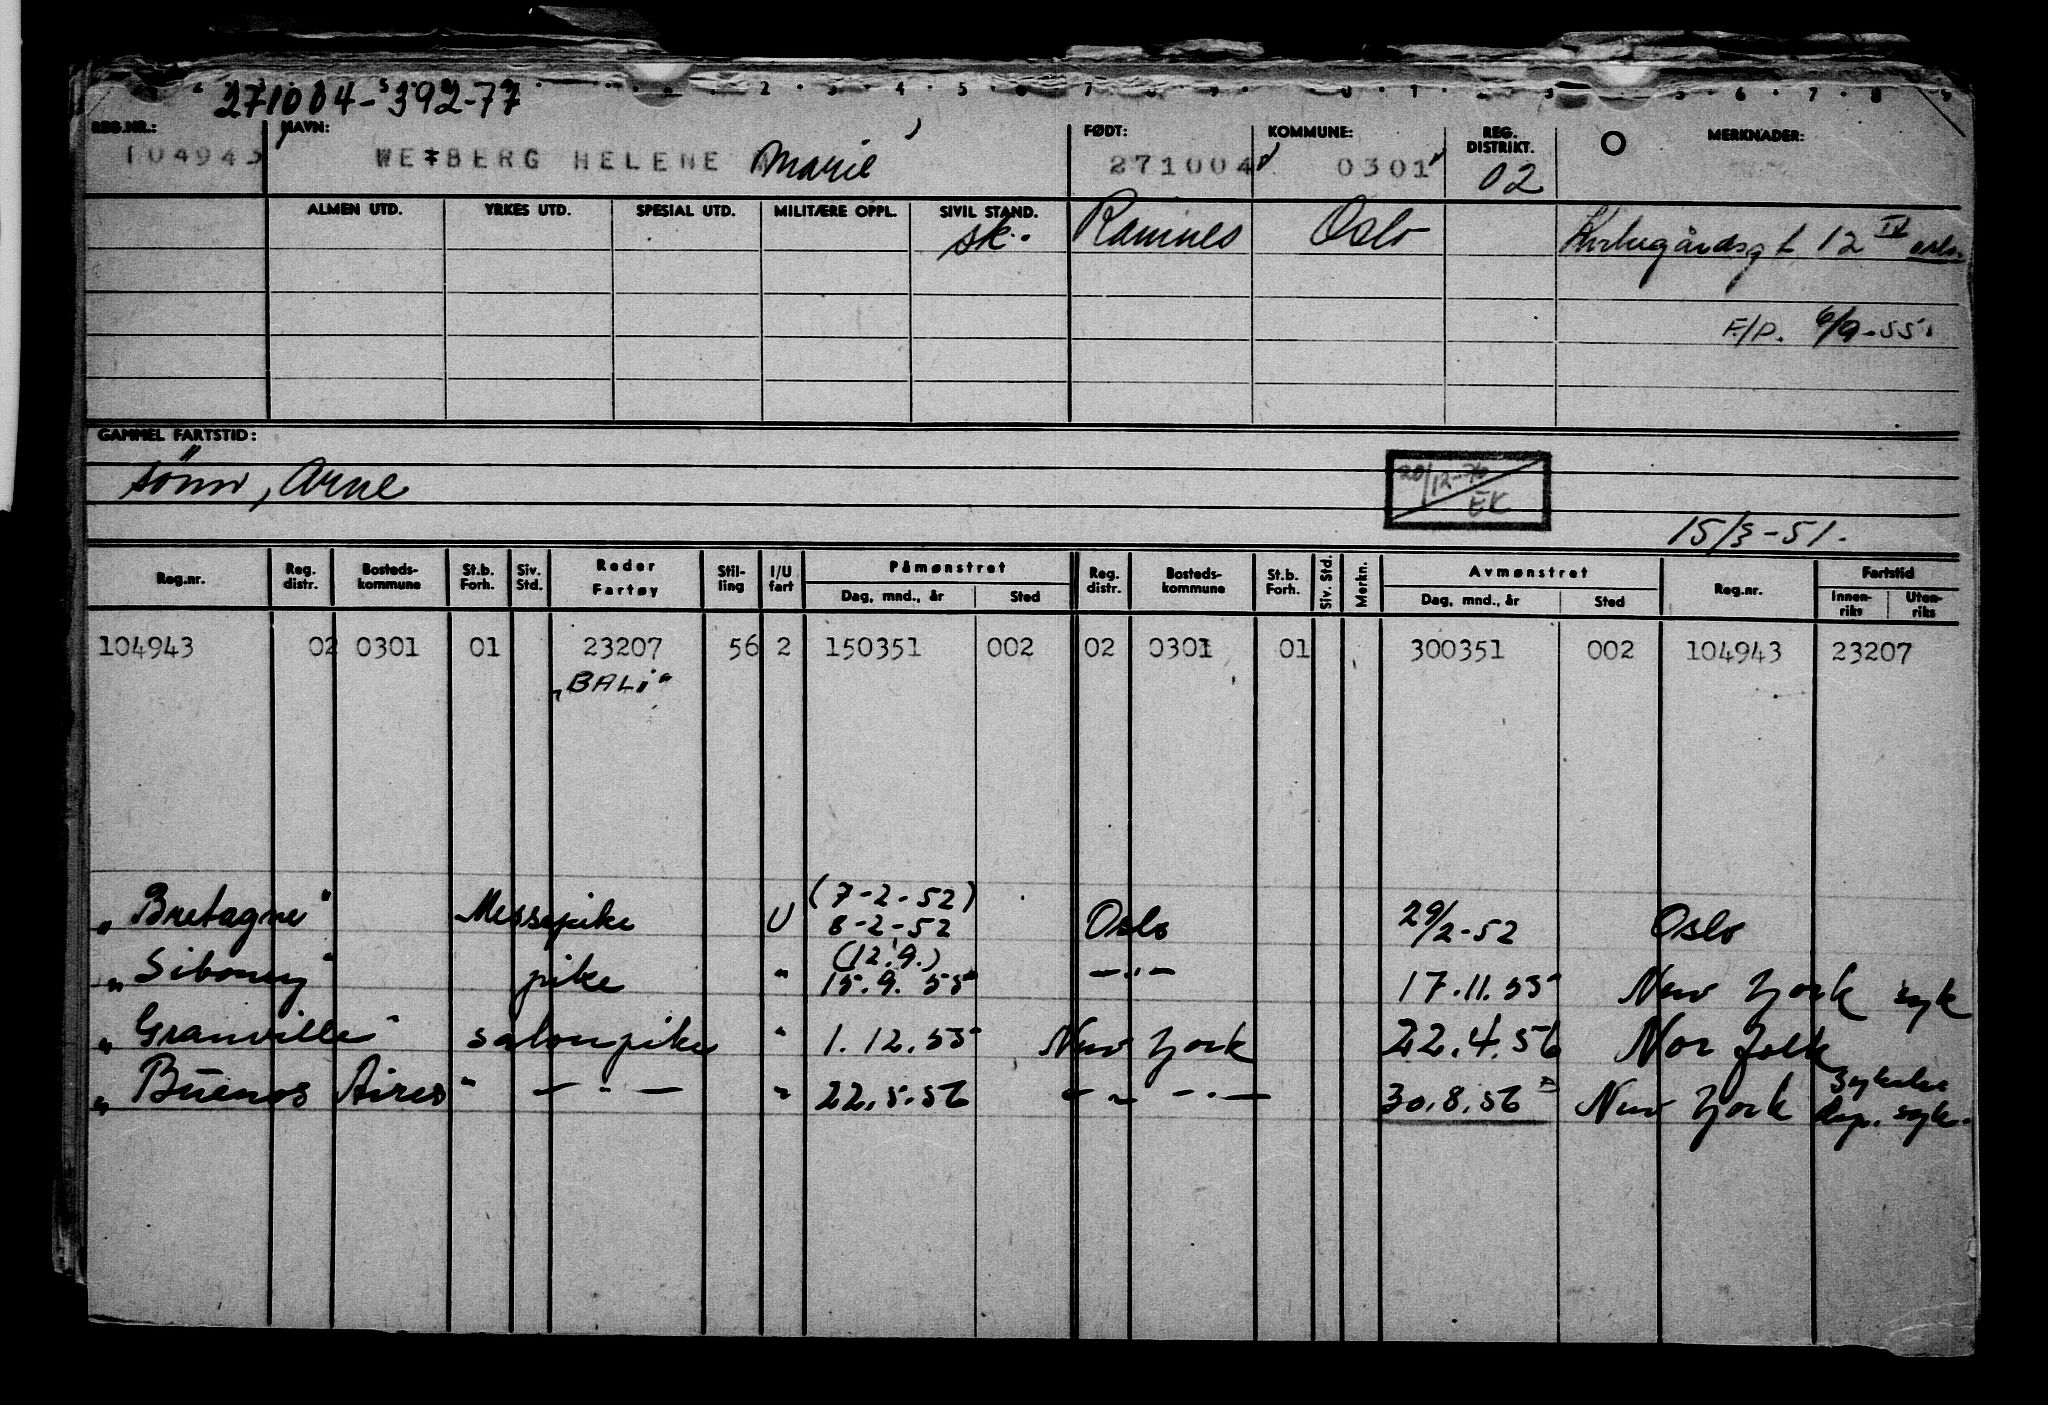 271004-39277
REG.NR.: NAVN: FØDT: KOMMUNE: REG. DISTRIKT. MERKNADER:
104943 HELENE Marie 271004 0301 02
ALMEN UTD. YRKES UTD. SPESIAL UTD. MILITÆRE OPPL. SIVIL STAND.
sk. Ramnes Oslo 12 IV Oslo.
F/P. 6/9-55.
GAMMEL FARTSTID:
sønn, Arne
20/12-76 EK
15/3-51.
Reg.nr. Reg. distr. Bosteds-kommune St.b. Forh. Siv. Std. Reder Fartøy Stil-ling I/U fart Påmønstret Dag, mnd., år Sted Reg. distr. Bosteds-kommune St.b. Forh. Siv. Std. Merkn. Avmønstret Dag, mnd., år Sted Reg.nr. Fartstid Innen-riks Uten-riks
104943 02 0301 01 23207 56 2 150351 002 02 0301 01 300351 002 104943 23207
„BALI"
(7-2-52)
„Bretagne" Messepike U 8-2-52 Oslo 29/2-52 Oslo
(12.9.)
„Siboney" pike " 15.9.55 —"— 17.11.55 New York syk
„Granville" salonpike " 1.12.55 New York 22.4.56 Norfolk
„Buenos Aires" —"— " 22.5.56 " " —"— 30.8.56 New York syk.